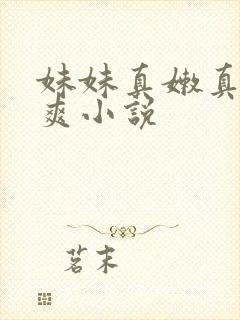 妹妹真嫩真
爽小説
茗末